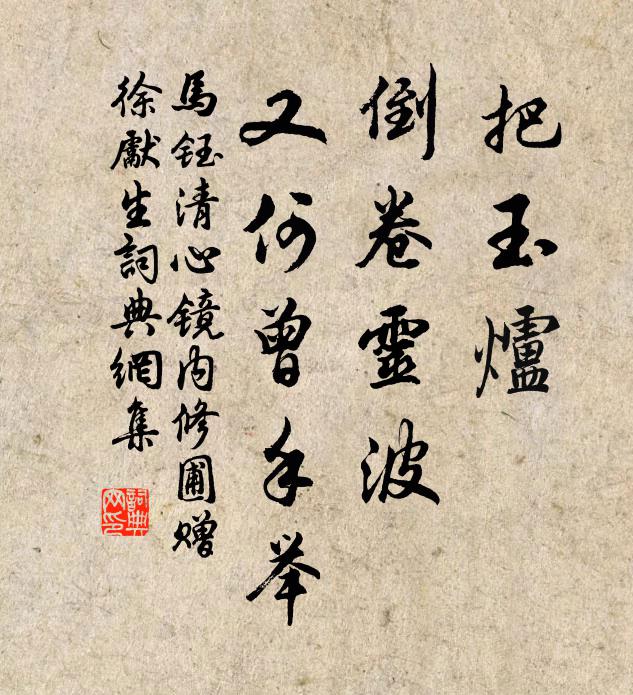 把玉爐
倒卷靈波
又何曾手举
馬鈺清心镜内修圃贈
徐獻生詞典網集
詞典網印